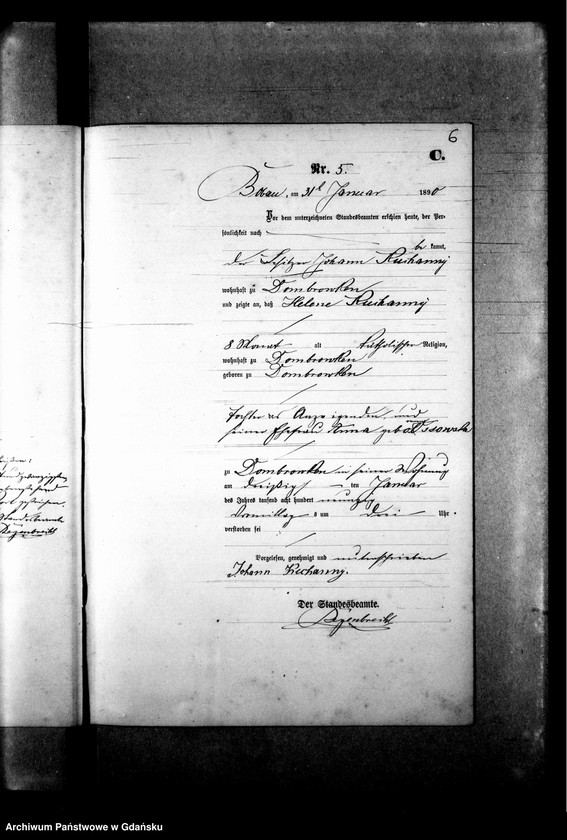 6
C.
Nr. 5.
Bobau, am 31t Januar 1890
Vor dem unterzeichneten Standesbeamten erschien heute, der Per-
sönlichkeit nach
be kannt,
der Besitzer Johann Kuchanny
wohnhaft zu Dombrowken
und zeigte an, daß Helene Kuchanny
8 Monat alt katholischer Religion,
wohnhaft zu Dombrowken
geboren zu Dombrowken
Tochter des Anzeigenden und
seiner Ehefrau Anna geb.
zu Dombrowken in seiner Wohnung
am dreißigsten Januar
des Jahres tausend acht hundert neunzig
Vormittags um drei Uhr
verstorben sei
Vorgelesen, genehmigt und unterschrieben
Johann Kuchanny.
Der Standesbeamte.
Regenbrecht
Regenbrecht
Archiwum Państwowe w Gdańsku